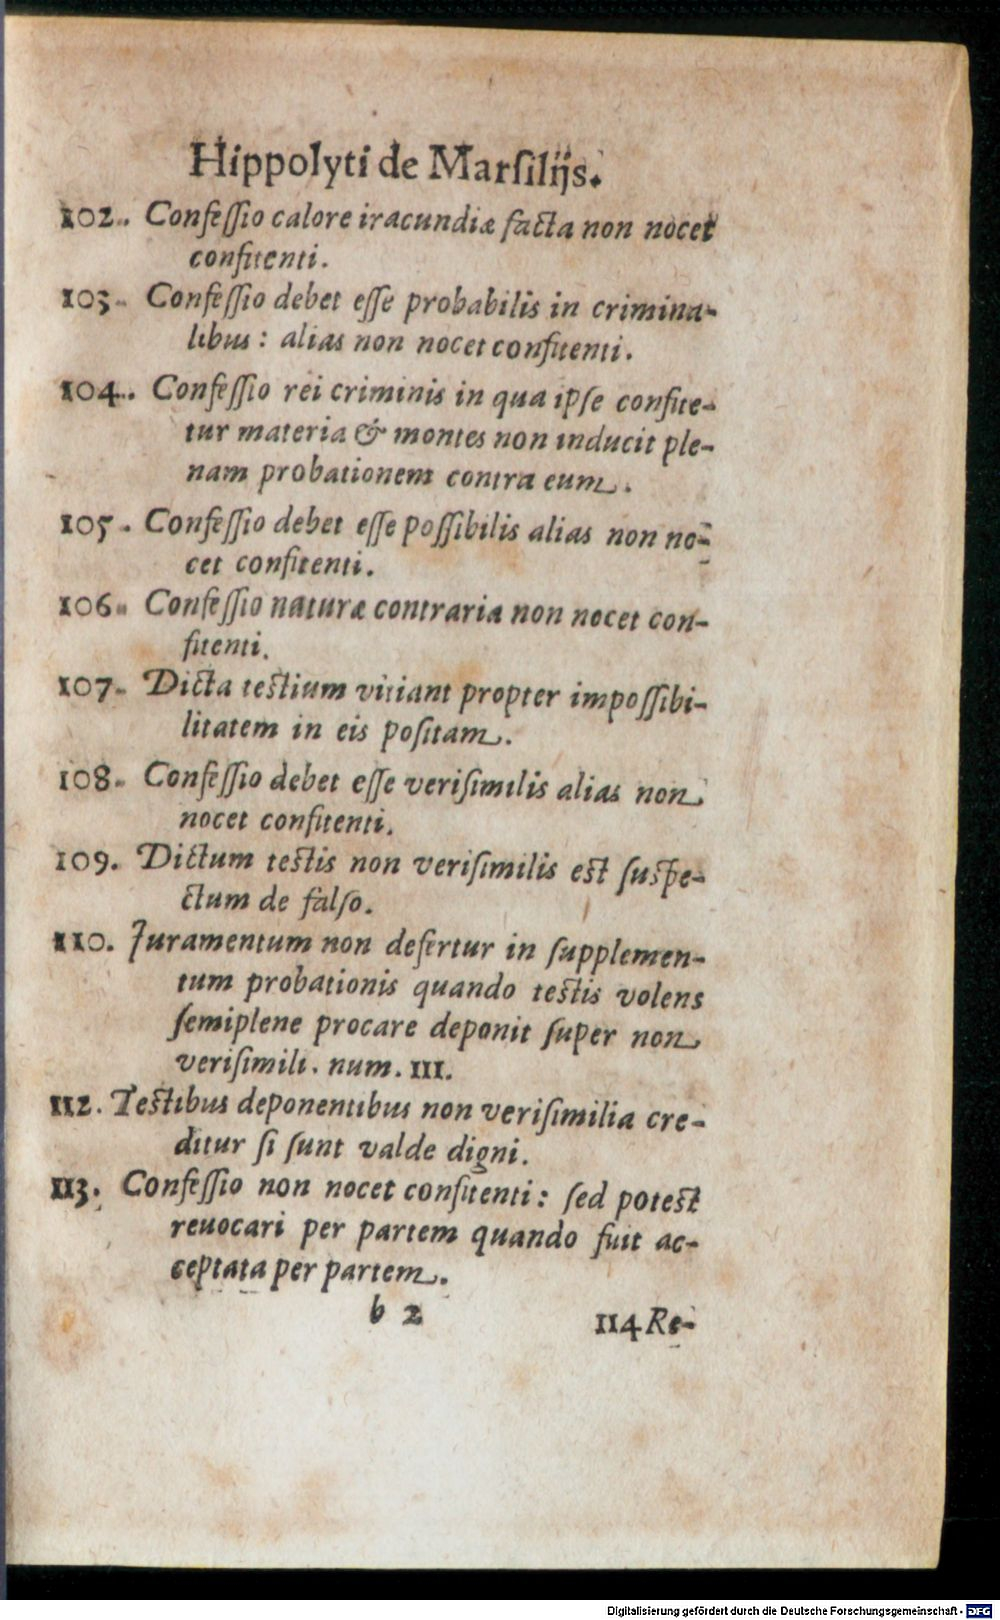 Hippolyti de Marſilijs.
102. Confeſſio calore iracundiæ facta non nocet
confitenti.
103. Confeſſio debet eſſe probabilis in crimina-
libus: alias non nocet confitenti.
104. Confeſſio rei criminis in qua ipſe confite-
tur materia & montes non inducit ple-
nam probationem contra eum.
105. Confeſſio debet eſſe poſſibilis alias non no-
cet confitenti.
106. Confeſſio naturæ contraria non nocet con-
fitenti.
107. Dicta teſtium vitiant propter impoſſibi-
litatem in eis poſitam.
108. Confeſſio debet eſſe veriſimilis alias non
nocet confitenti.
109. Dictum teſtis non veriſimilis eſt ſuſpe-
ctum de falſo.
110. Juramentum non defertur in ſupplemen-
tum probationis quando teſtis volens
ſemiplene procare deponit ſuper non
veriſimili. num. 111.
112. Teſtibus deponentibus non veriſimilia cre-
ditur ſi ſunt valde digni.
113. Confeſſio non nocet confitenti: ſed poteſt
reuocari per partem quando fuit ac-
ceptata per partem.
b 2 114 Re-
Digitalisierung gefördert durch die Deutsche Forschungsgemeinschaft - DFG